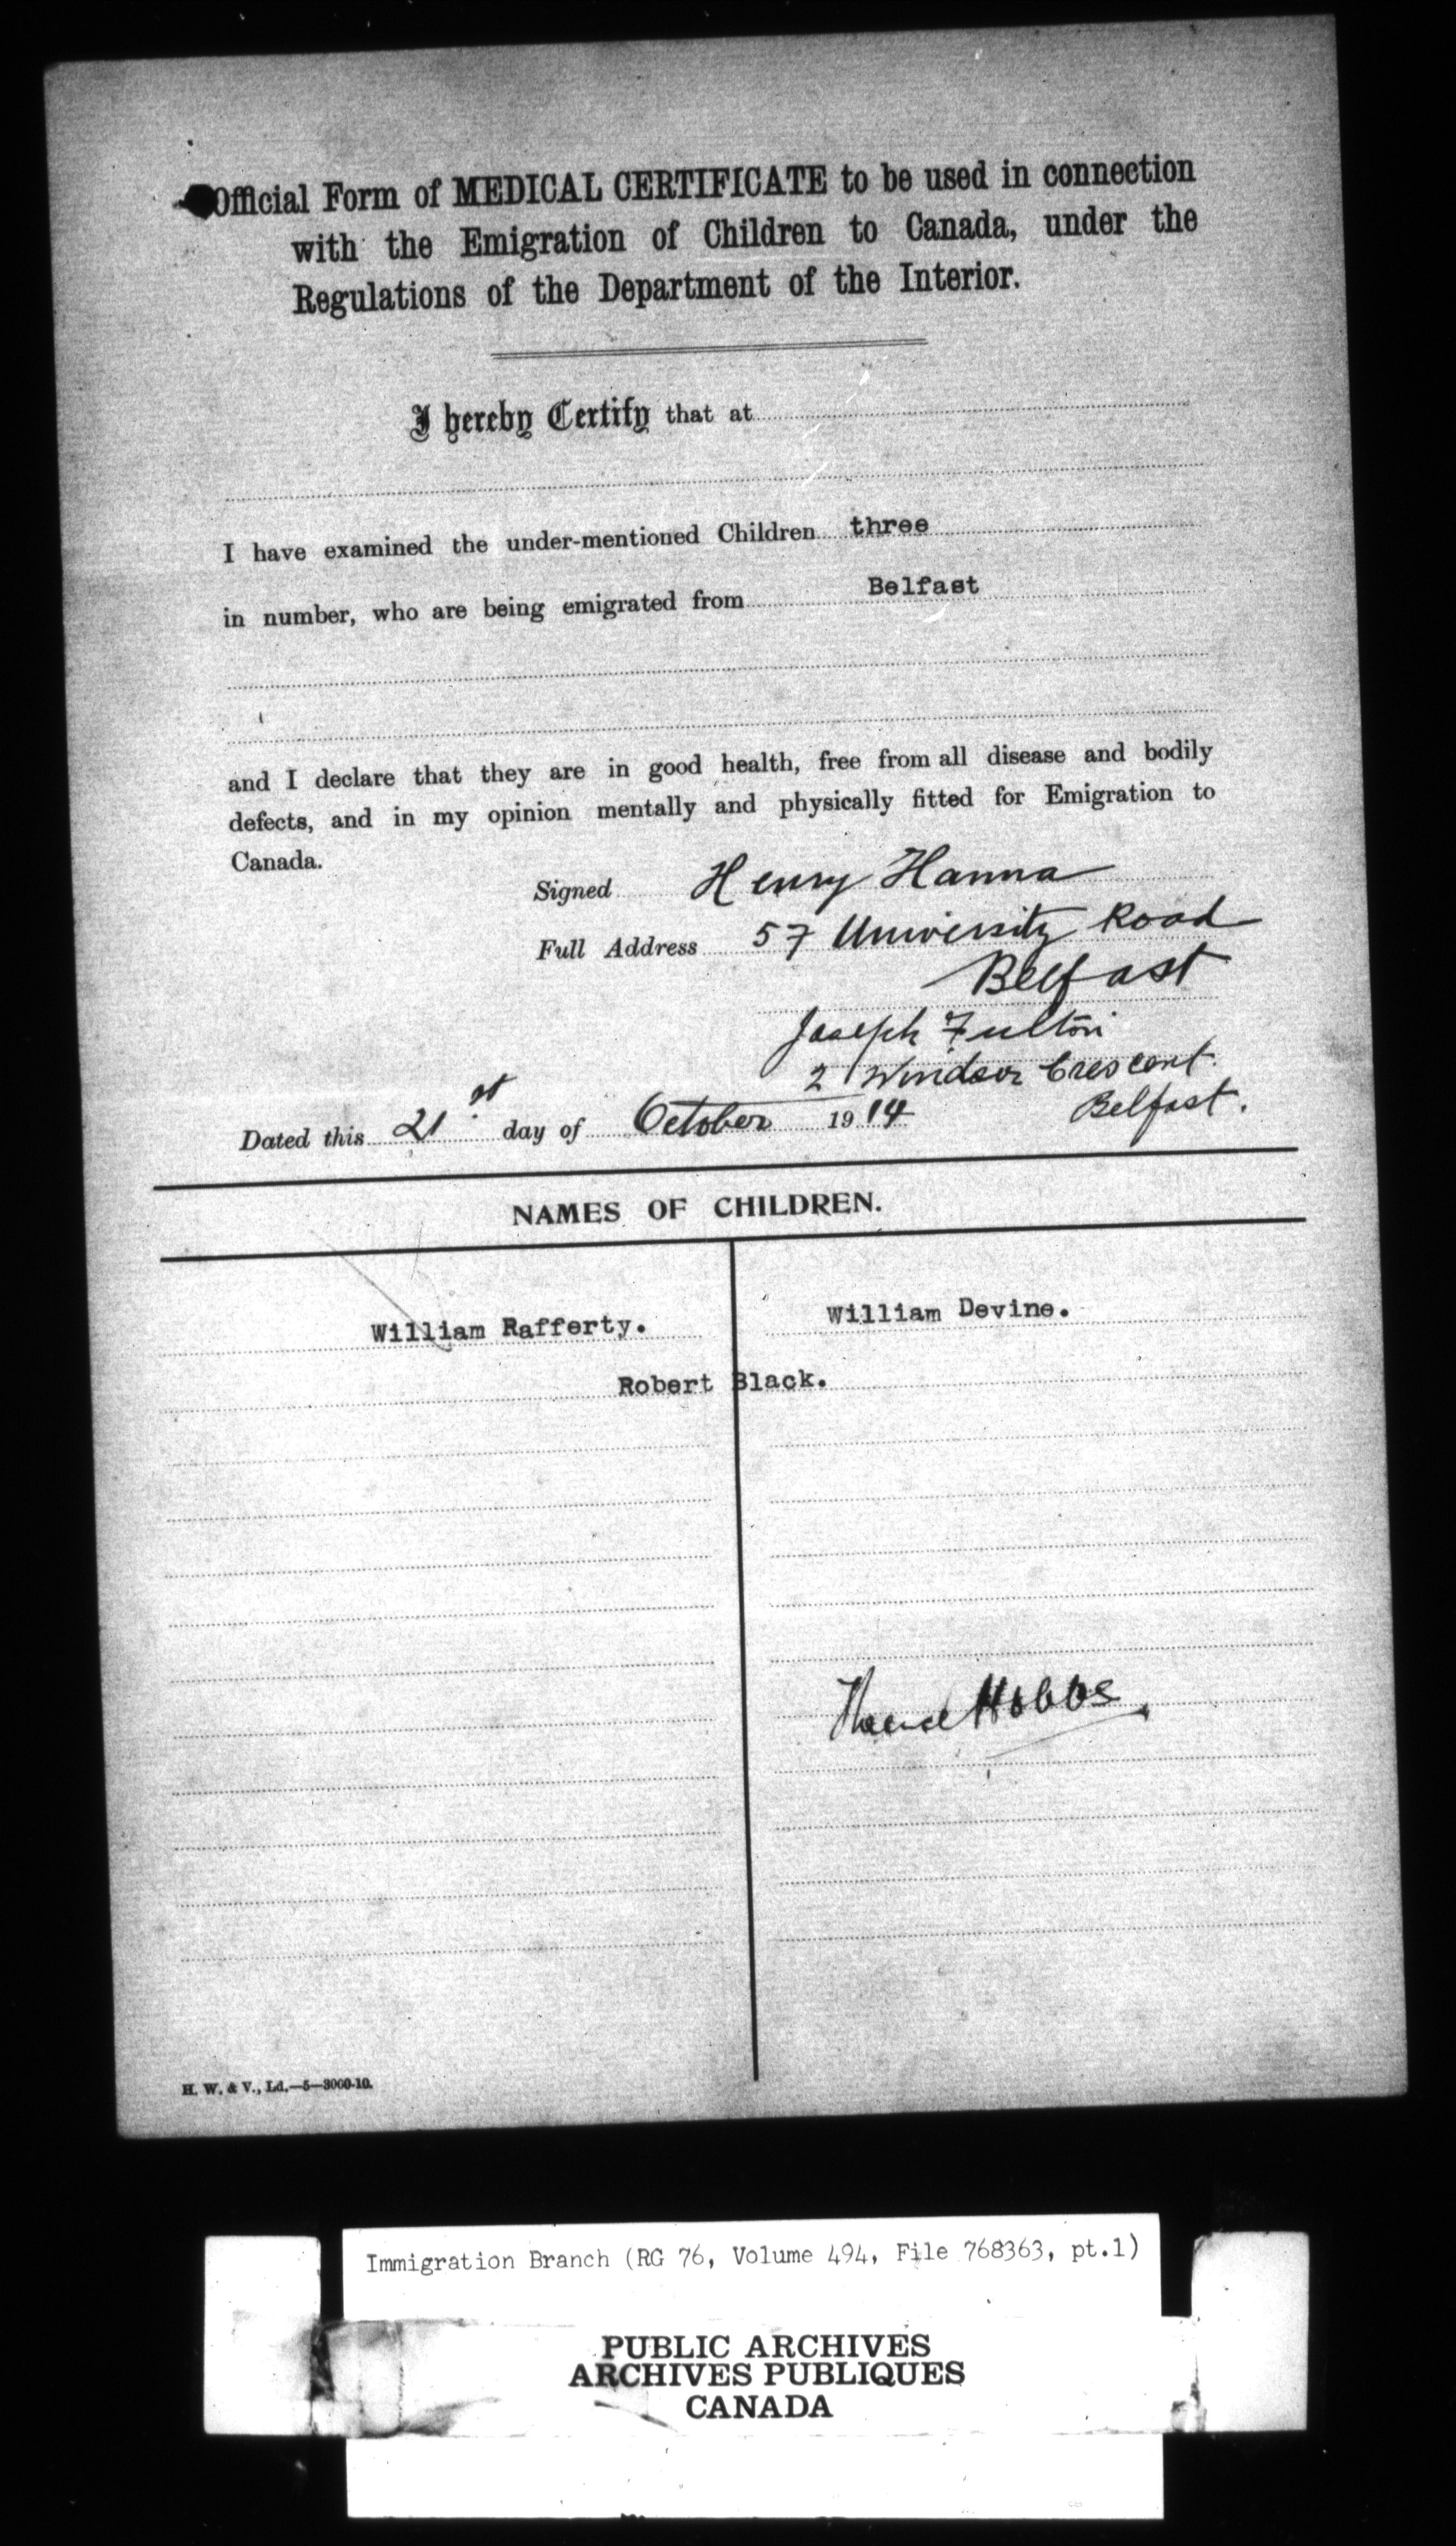 Official Form of MEDICAL CERTIFICATE to be used in connection
with the Emigration of Children to Canada, under the
Regulations of the Department of the Interior.
I hereby Certify that at
I have examined the under-mentioned Children three
in number, who are being emigrated from Belfast
and I declare that they are in good health, free from all disease and bodily
defects, and in my opinion mentally and physically fitted for Emigration to
Canada.
Signed Henry Hanna
Full Address 57 University Road
Belfast
Joseph Fulton
2 Windsor Crescent.
Belfast.
Dated this 21st day of October 1914
NAMES OF CHILDREN.
William Rafferty. William Devine.
Robert Black.
Hobbs
H. W. & V., Ld.—5—3000-10.
Immigration Branch (RG 76, Volume 494, File 768363, pt.1)
PUBLIC ARCHIVES
ARCHIVES PUBLIQUES
CANADA